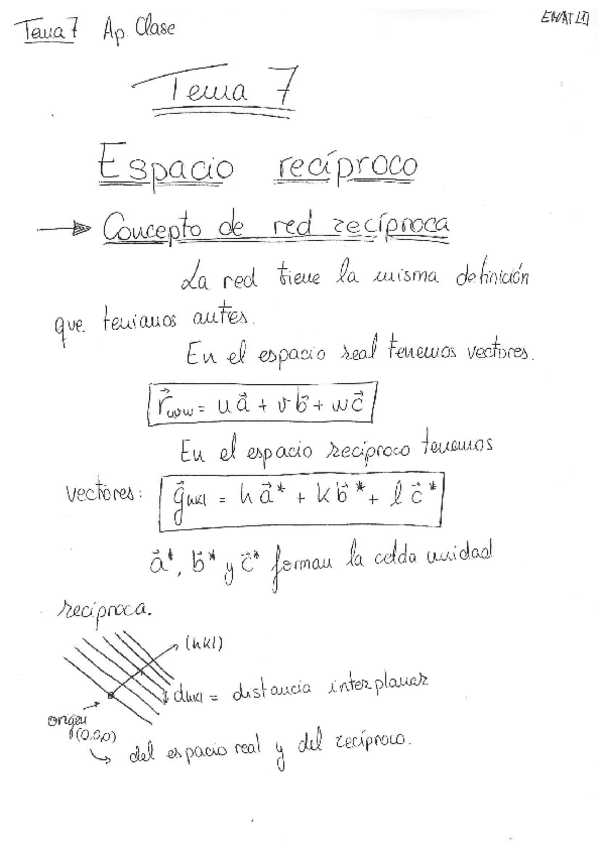 Tema 7 Ap. Clase
Tema 7
Espacio recíproco
→ Concepto de red recíproca
La red tiene la misma definición
que teniamos antes.
En el espacio real tenemos vectores.
r⃗uvw = u a⃗ + v b⃗ + w c⃗
En el espacio recíproco tenemos
vectores: g⃗hkl = h a⃗* + k b⃗* + l c⃗*
a⃗*, b⃗* y c⃗* forman la celda unidad
recíproca.
(hkl)
dhkl = distancia interplanar
origen
(0,0,0)
del espacio real y del recíproco.